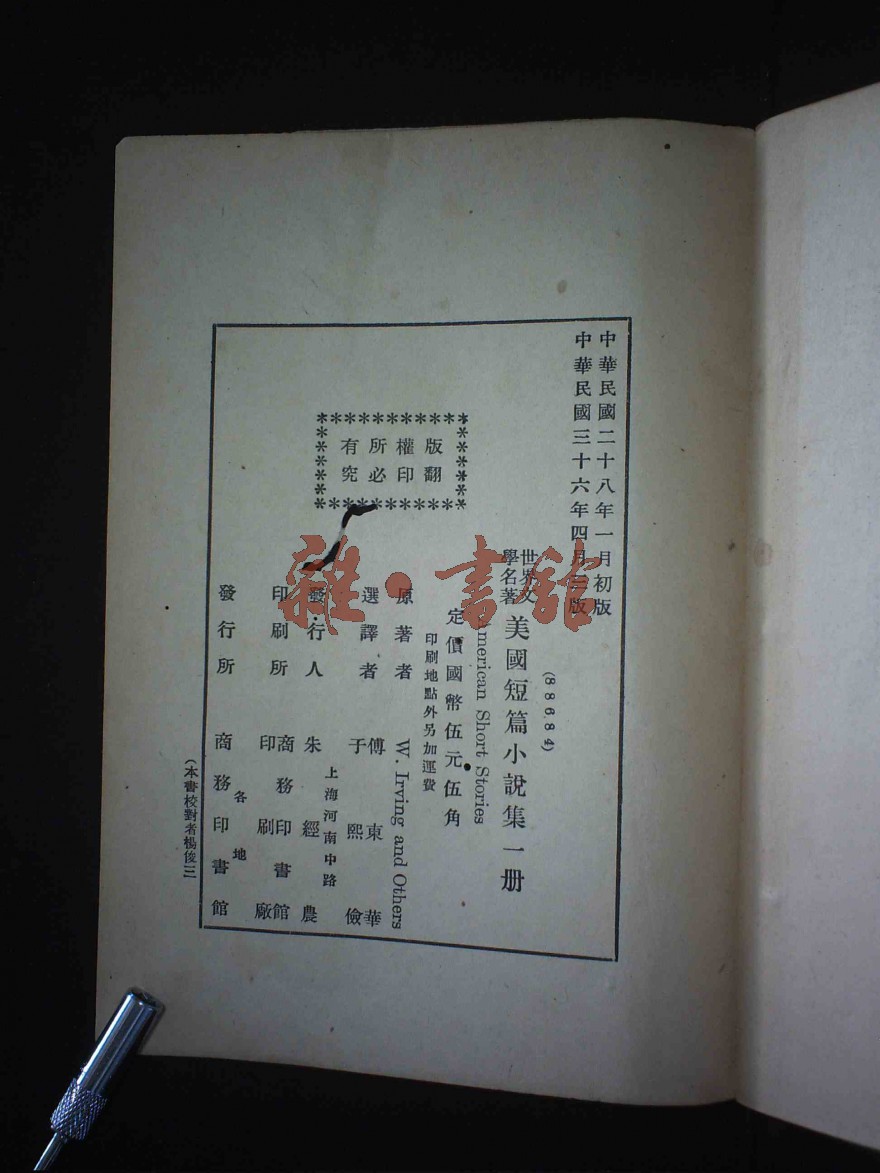 中華民國二十八年一月初版
中華民國三十六年四月三版
(88684)
世界文
學名著
美國短篇小說集一册
American Short Stories
定價國幣伍元伍角
印刷地點外另加運費
版權所有
翻印必究
原著者 W. Irving and Others
選譯者 傅東華
于熙儉
上海河南中路
發行人 朱經農
印刷所 商務印書館
印刷廠
各地
發行所 商務印書館
(本書校對者楊俊三
雜·書館